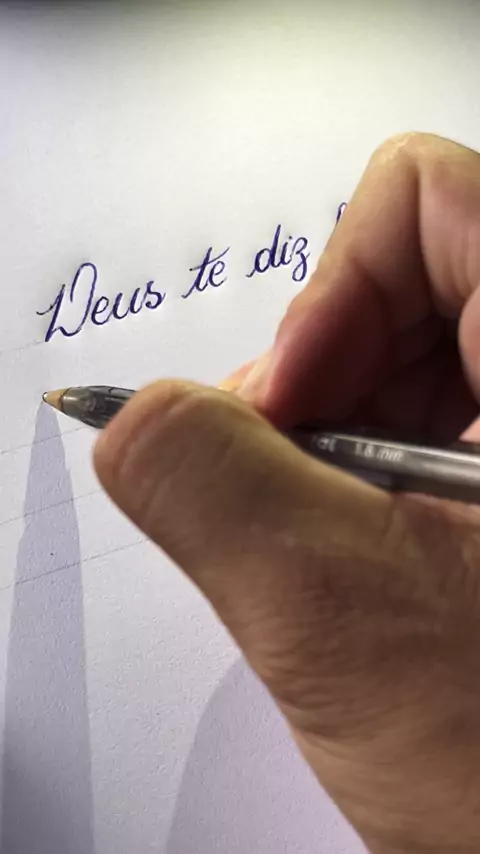 Deus te diz
1.6 mm